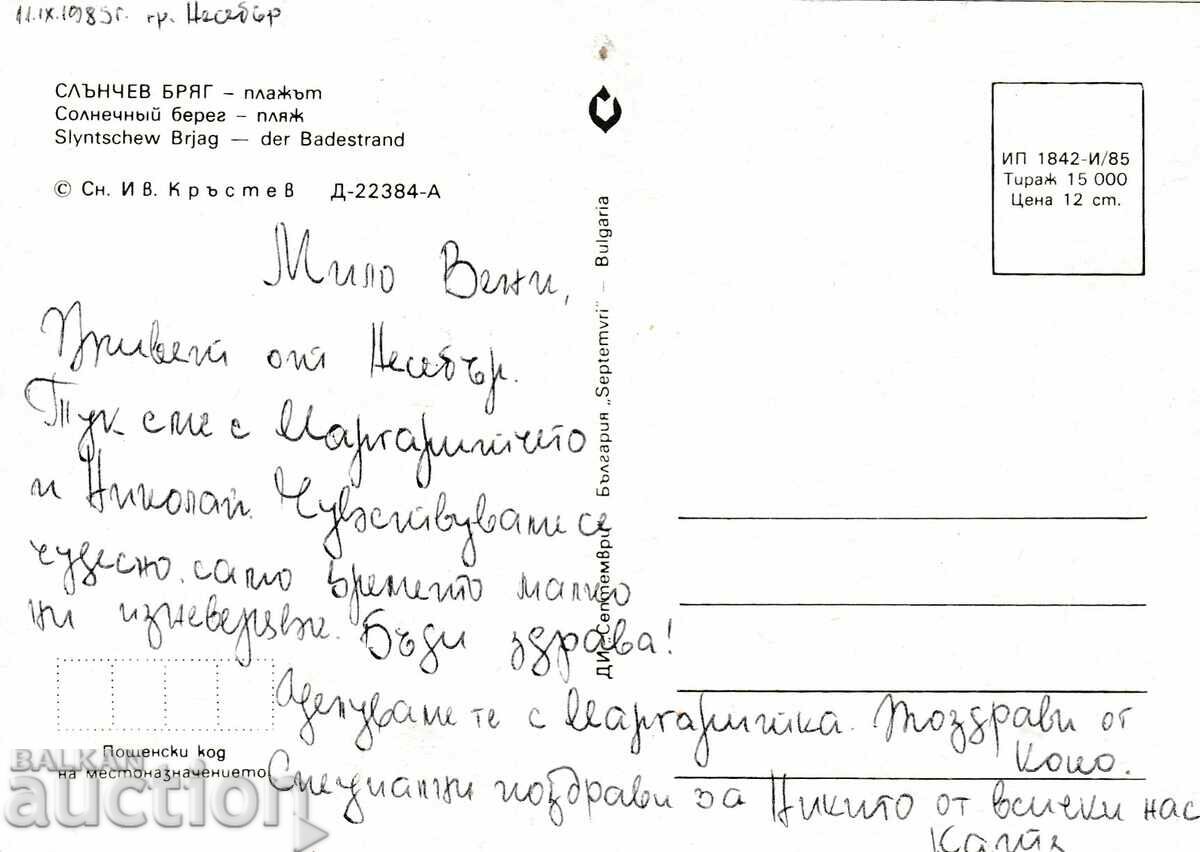 11.IX.1985г. гр. Несебър
СЛЪНЧЕВ БРЯГ – плажът
Солнечный берег – пляж
Slyntschew Brjag — der Badestrand
© Сн. Ив. Кръстев Д-22384-А
ИП 1842-И/85
Тираж 15 000
Цена 12 ст.
ДИ „Септември" България „Septemvri" – Bulgaria
Мило Вени,
Привет от Несебър.
Тук сме с Маргаритчето
и Николай. Чувствуваме се
чудесно, само времето малко
ни изневерява. Бъди здрава!
Целуваме те с Маргаритка. Поздрави от
Коко.
Специални поздрави за Никито от всички нас
Пощенски код
на местоназначението
BALKAN
auction